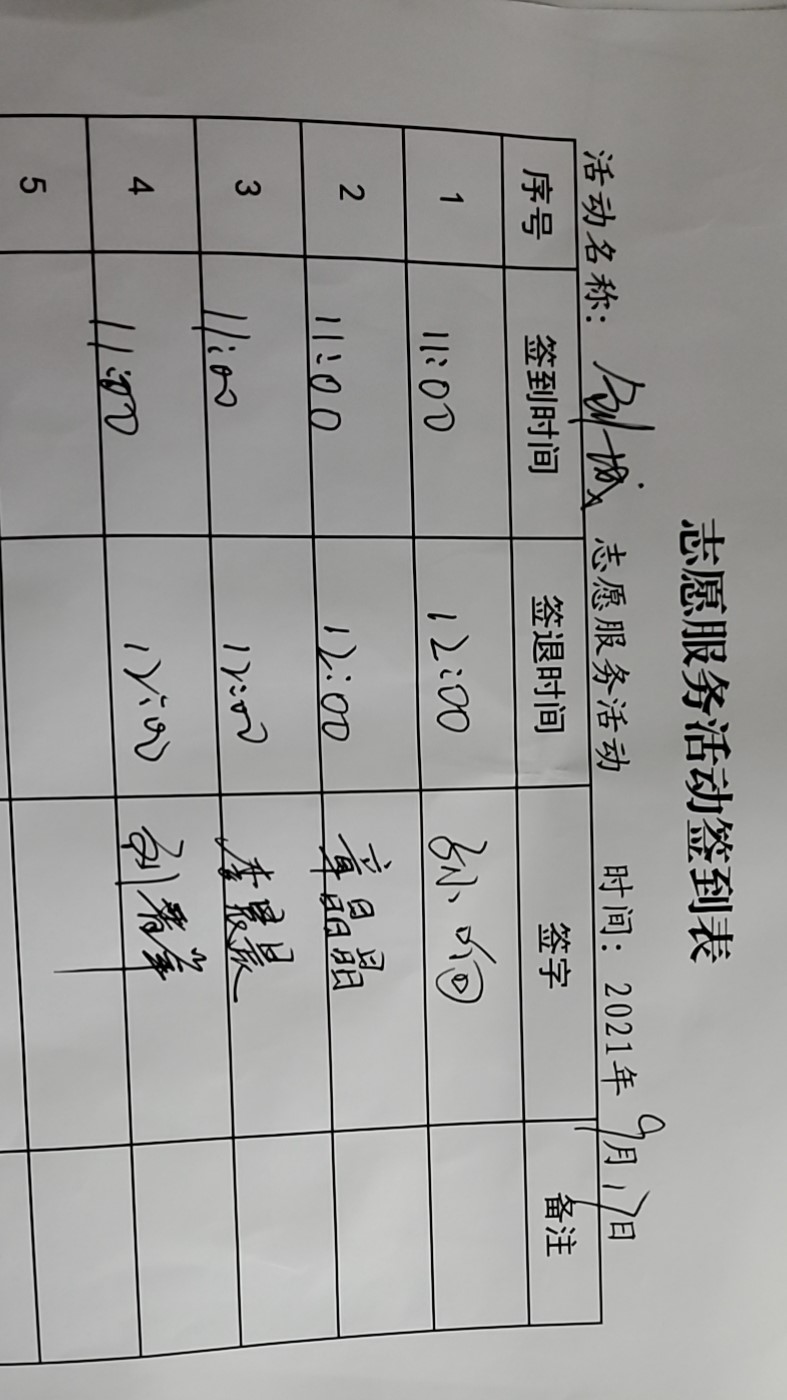 志愿服务活动签到表
活动名称：创城 志愿服务活动 时间：2021年9月17日
序号 签到时间 签退时间 签字 备注
1 11:00 12:00
2 11:00 12:00 章晶晶
3 11:00 12:00 李晨晨
4 11:00 12:00
5